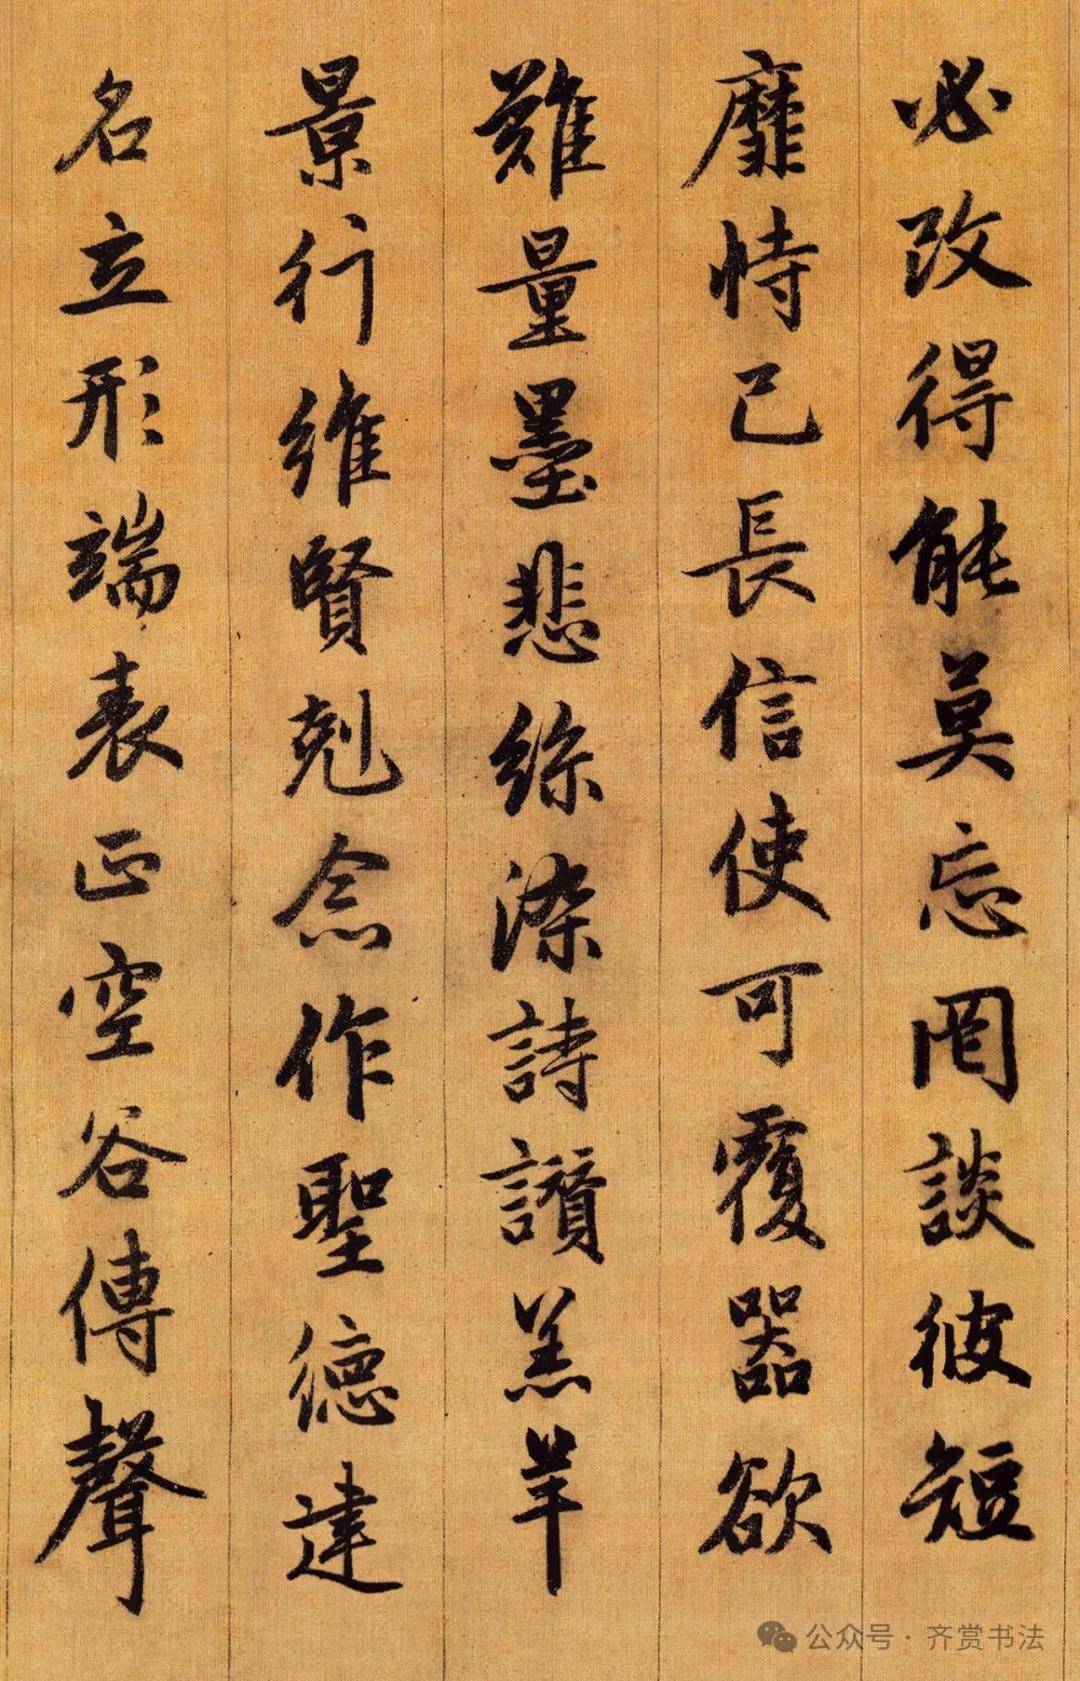 必改得能莫忘罔談彼短
靡恃己長信使可覆器欲
難量墨悲絲染詩讚羔羊
景行維賢剋念作聖德建
名立形端表正空谷傳聲
公众号·齐赏书法